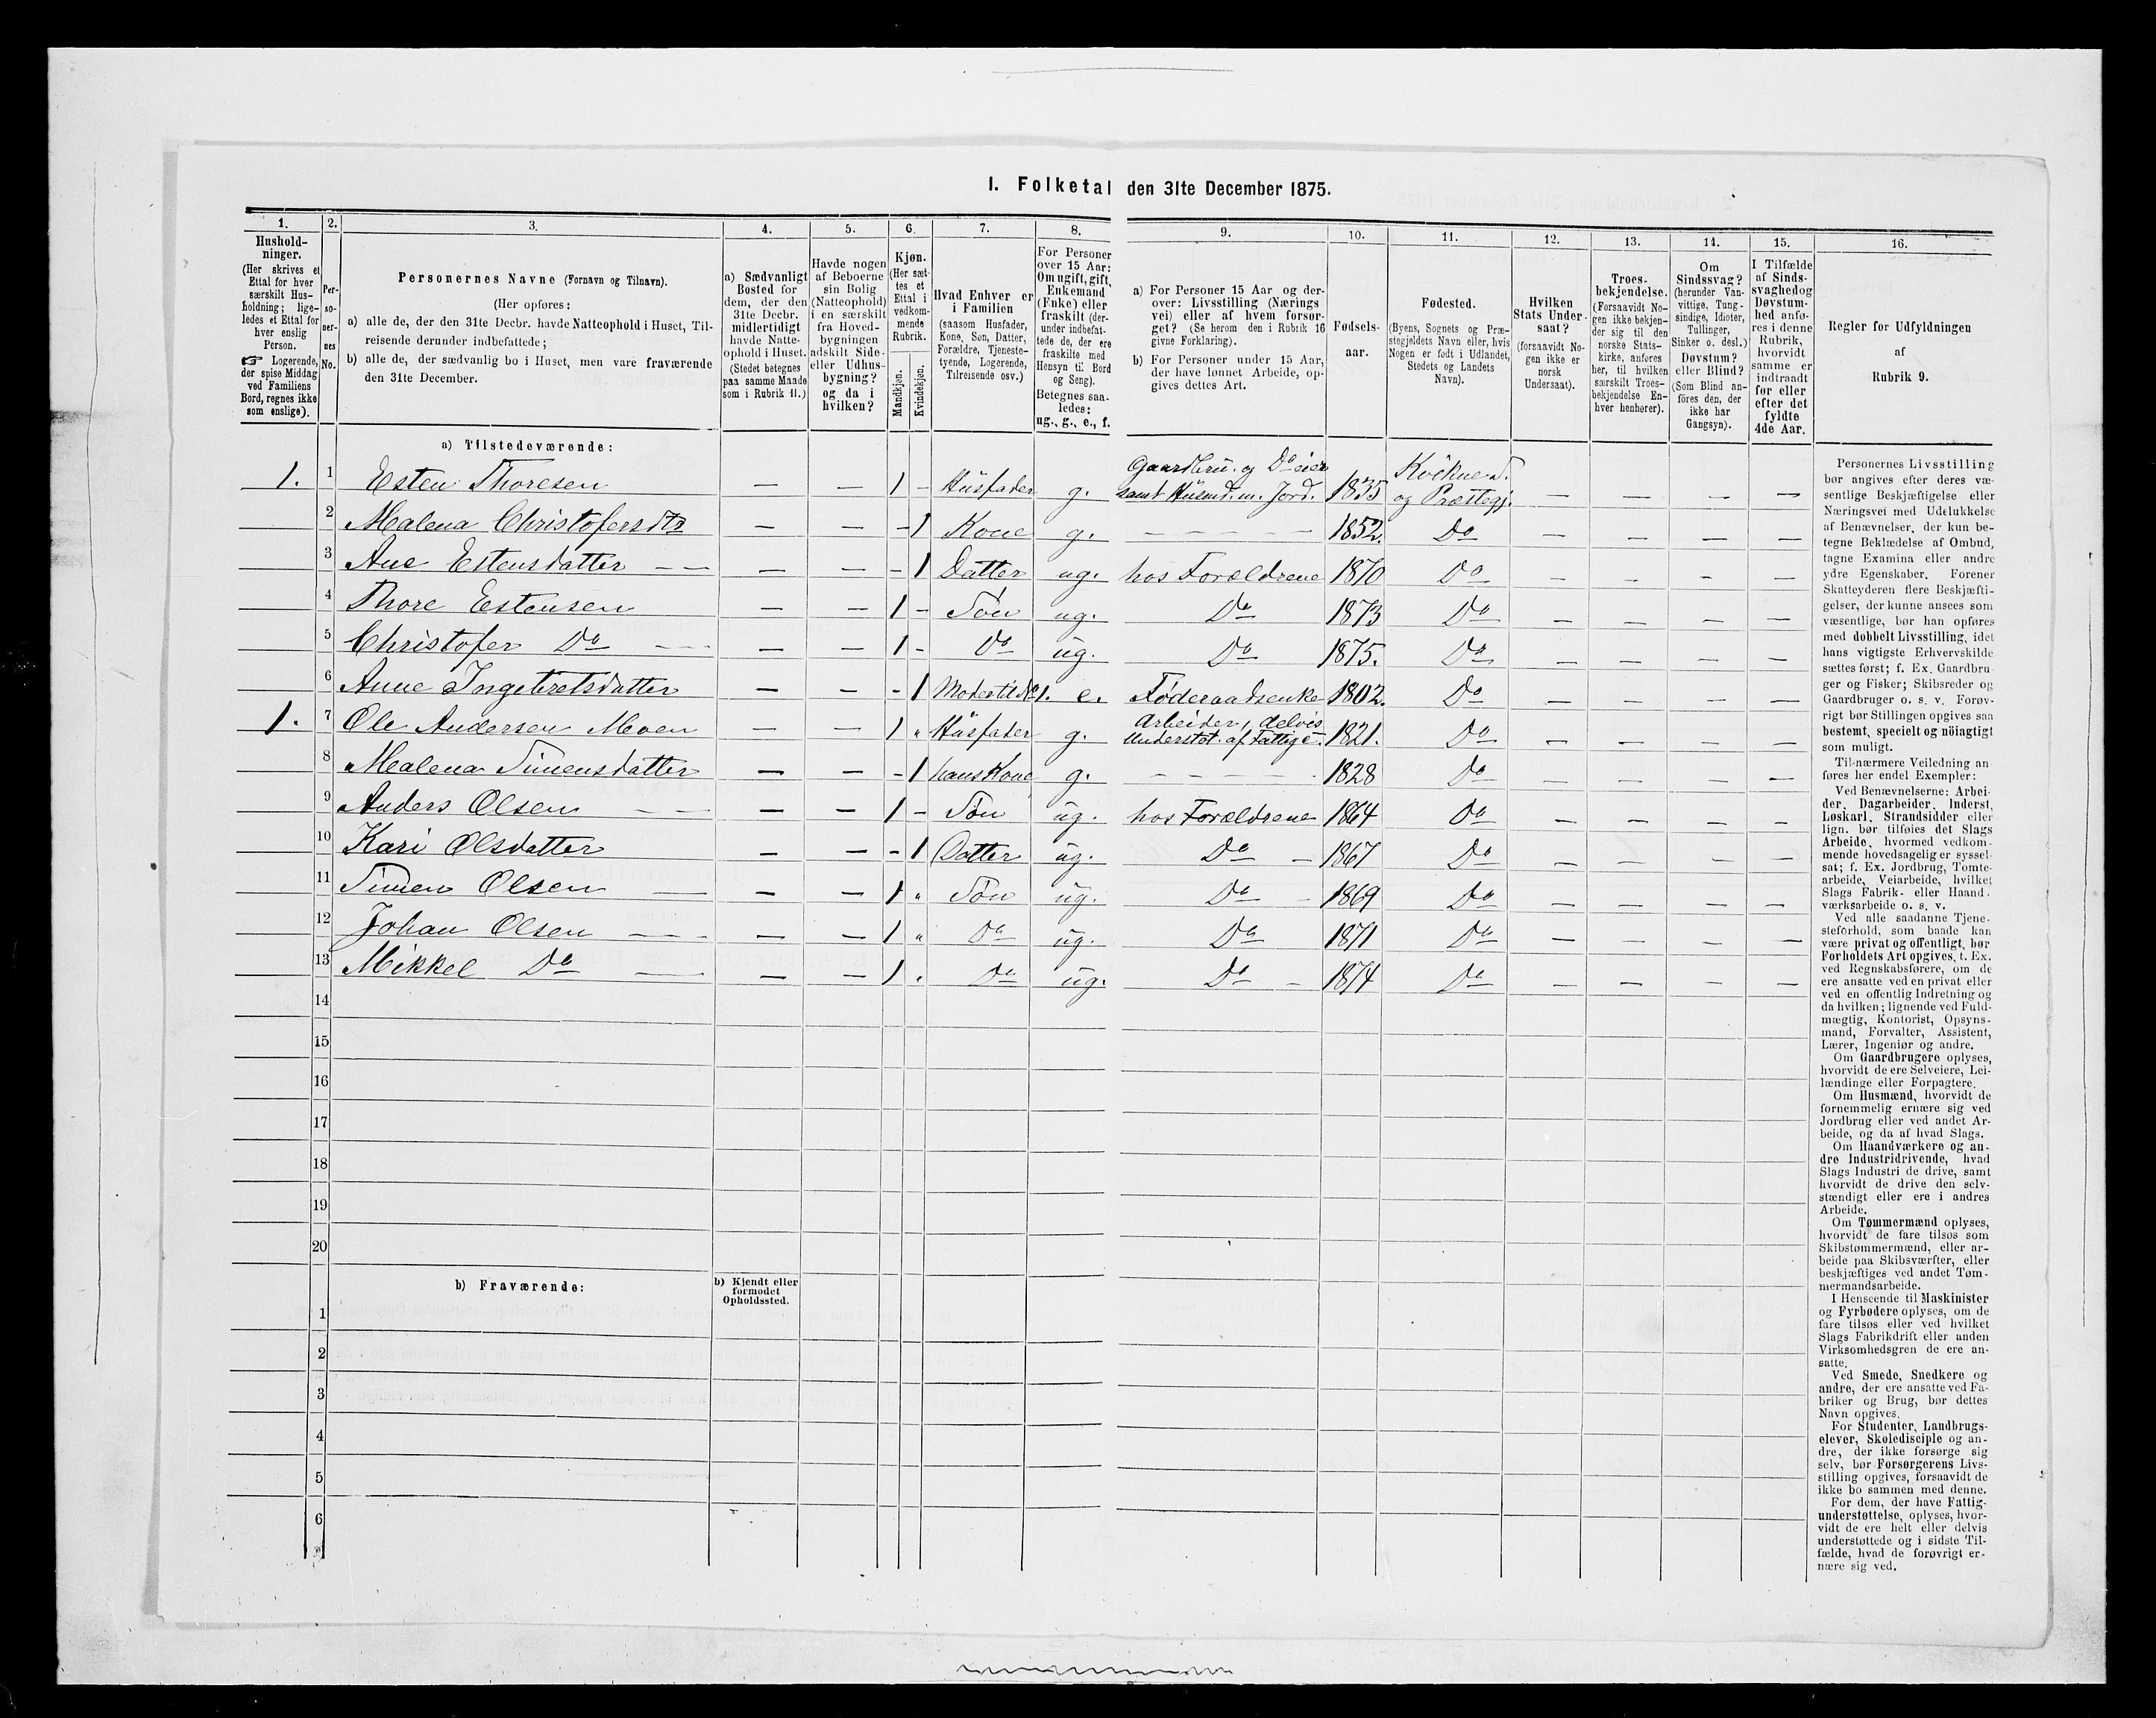 I. Folketal den 31te December 1875.
1.
2.
3.
4.
5.
6.
7.
8.
9.
10.
11.
12.
13.
14.
15.
16.
Hushold-
ninger.
(Her skrives et
Ettal for hver
særskilt Hus-
holdning; lige-
ledes et Ettal for
hver enslig
Person.
☞ Logerende,
der spise Middag
ved Familiens
Bord, regnes ikke
som enslige).
Per-
so-
ner-
nes
No.
Personernes Navne (Fornavn og Tilnavn).
(Her opføres:
a) alle de, der den 31te Decbr. havde Natteophold i Huset, Til-
reisende derunder indbefattede;
b) alle de, der sædvanlig bo i Huset, men vare fraværende
den 31te December.
a) Sædvanligt
Bosted for
dem, der den
31te Decbr.
midlertidigt
havde Natte-
ophold i Huset.
(Stedet betegnes
paa samme Maade
som i Rubrik 11.)
Havde nogen
af Beboerne
sin Bolig
(Natteophold)
i en særskilt
fra Hoved-
bygningen
adskilt Side-
eller Udhus-
bygning?
og da i
hvilken?
Kjøn.
(Her sæt-
tes et
Ettal i
vedkom-
mende
Rubrik.
Mandkjøn.
Kvindekjøn.
Hvad Enhver er
i Familien
(saasom Husfader,
Kone, Søn, Datter,
Forældre, Tjeneste-
tyende, Logerende,
Tilreisende osv.)
For Personer
over 15 Aar:
Om ugift, gift,
Enkemand
(Enke) eller
fraskilt (der-
under indbefat-
tede de, der ere
fraskilte med
Hensyn til Bord
og Seng).
Betegnes saa-
ledes:
ug., g., e., f.
a) For Personer 15 Aar og der-
over: Livsstilling (Nærings
vei) eller af hvem forsør-
get? (Se herom den i Rubrik 16
givne Forklaring).
b) For Personer under 15 Aar,
der have lønnet Arbeide, op-
gives dettes Art.
Fødsels-
aar.
Fødested.
(Byens, Sognets og Præ-
stegjeldets Navn eller, hvis
Nogen er født i Udlandet,
Stedets og Landets
Navn).
Hvilken
Stats Under-
saat?
(forsaavidt No-
gen ikke er
norsk
Undersaat).
Troes-
bekjendelse.
(Forsaavidt No-
gen ikke bekjen-
der sig til den
norske Stats-
kirke, anføres
her, til hvilken
særskilt Troes-
bekjendelse En-
hver henhører).
Om
Sindssvag?
(herunder Van-
vittige, Tung-
sindige, Idioter,
Tullinger,
Sinker o. desl.)
Døvstum?
eller Blind?
(Som Blind an-
føres den, der
ikke har
Gangsyn).
I Tilfælde
af Sinds-
svaghed og
Døvstum-
hed anfø-
res i denne
Rubrik,
hvorvidt
samme er
indtraadt
før eller
efter det
fyldte
4de Aar.
Regler for Udfyldningen
af
Rubrik 9.
a) Tilstedeværende:
1. 1 Esten Thoresen — — 1 - Husfader g. Gaardbru. og Do eier samt Husmd. m. Jord. 1835 Kvikne S. og Præstegj. — — — —
2 Malena Christofersdtr — — - 1 Kone g. - - - - - 1852. Do — — — —
3 Ane Estensdatter — — — — - 1 Datter ug. hos Forældrene 1870 Do — — — —
4 Thore Estensen — — 1 - Søn ug. Do 1873 Do — — — —
5 Christofer Do — — — 1 - Do ug. Do 1875. Do — — — —
6 Anne Ingebretsdatter — — - 1 Moder til No 1. e. Føderaadsenke 1802. Do — — — —
1. 7 Ole Andersen Moen — — 1 " Husfader g. Arbeider, delvis Understøt. af Fattigv. 1821. Do — — — —
8 Malena Simensdatter — — - 1 hans Kone g. - - - - - 1828 Do — — — —
9 Anders Olsen — — — — 1 - Søn ug. hos Forældrene 1864 Do — — — —
10 Kari Olsdatter — — - 1 Datter ug. Do — 1867 Do — — — —
11 Simen Olsen — — — 1 " Søn ug. Do - 1869 Do — — — —
12 Johan Olsen — — — — 1 " Do ug. Do 1871 Do — — — —
13 Mikkel Do — — — 1 " Do ug. Do - 1874 Do — — — —
14
15
16
17
18
19
20
b) Fraværende:
b) Kjendt eller
formodet
Opholdssted.
1
2
3
4
5
6
Personernes Livsstilling
bør angives efter deres væ-
sentlige Beskjæftigelse eller
Næringsvei med Udelukkelse
af Benævnelser, der kun be-
tegne Beklædelse af Ombud,
tagne Examina eller andre
ydre Egenskaber. Forener
Skatteyderen flere Beskjæfti-
gelser, der kunne ansees som
væsentlige, bør han opføres
med dobbelt Livsstilling, idet
hans vigtigste Erhvervskilde
sættes først; f. Ex. Gaardbru-
ger og Fisker; Skibsreder og
Gaardbruger o. s. v. Forøv-
rigt bør Stillingen opgives saa
bestemt, specielt og nöiagtigt
som muligt.
Til nærmere Veiledning an-
føres her endel Exempler:
Ved Benævnelserne: Arbei-
der, Dagarbeider, Inderst,
Løskarl, Strandsidder eller
lign. bør tilføies det Slags
Arbeide, hvormed vedkom-
mende hovedsagelig er syssel-
sat; f. Ex. Jordbrug, Tomte-
arbeide, Veiarbeide, hvilket
Slags Fabrik- eller Haand-
værksarbeide o. s. v.
Ved alle saadanne Tjene-
steforhold, som baade kan
være privat og offentligt, bør
Forholdets Art opgives, f. Ex.
ved Regnskabsførere, om de
ere ansatte ved en privat eller
ved en offentlig Indretning og
da hvilken; lignende ved Fuld-
mægtig, Kontorist, Opsyns-
mand, Forvalter, Assistent,
Lærer, Ingeniør og andre.
Om Gaardbrugere oplyses,
hvorvidt de ere Selveiere, Lei-
lændinge eller Forpagtere.
Om Husmænd, hvorvidt de
fornemmelig ernære sig ved
Jordbrug eller ved andet Ar-
beide, og da af hvad Slags.
Om Haandværkere og an-
dre Industridrivende, hvad
Slags Industri de drive, samt
hvorvidt de drive den selv-
stændigt eller ere i andres
Arbeide.
Om Tømmermænd oplyses,
hvorvidt de fare tilsøs som
Skibstømmermænd, eller ar-
beide paa Skibsværfter, eller
beskjæftiges ved andet Tøm-
mermandsarbeide.
I Henseende til Maskinister
og Fyrbødere oplyses, om de
fare tilsøs eller ved hvilket
Slags Fabrikdrift eller anden
Virksomhedsgren de ere an-
satte.
Ved Smede, Snedkere og
andre, der ere ansatte ved Fa-
briker og Brug, bør dettes
Navn opgives.
For Studenter, Landbrugs-
elever, Skoledisciple og an-
dre, der ikke forsørge sig
selv, bør Forsørgerens Livs-
stilling opgives, forsaavidt de
ikke bo sammen med denne.
For dem, der have Fattig-
understøttelse, oplyses, hvor-
vidt de ere helt eller delvis
understøttede og i sidste Til-
fælde, hvad de forøvrigt er-
nære sig ved.